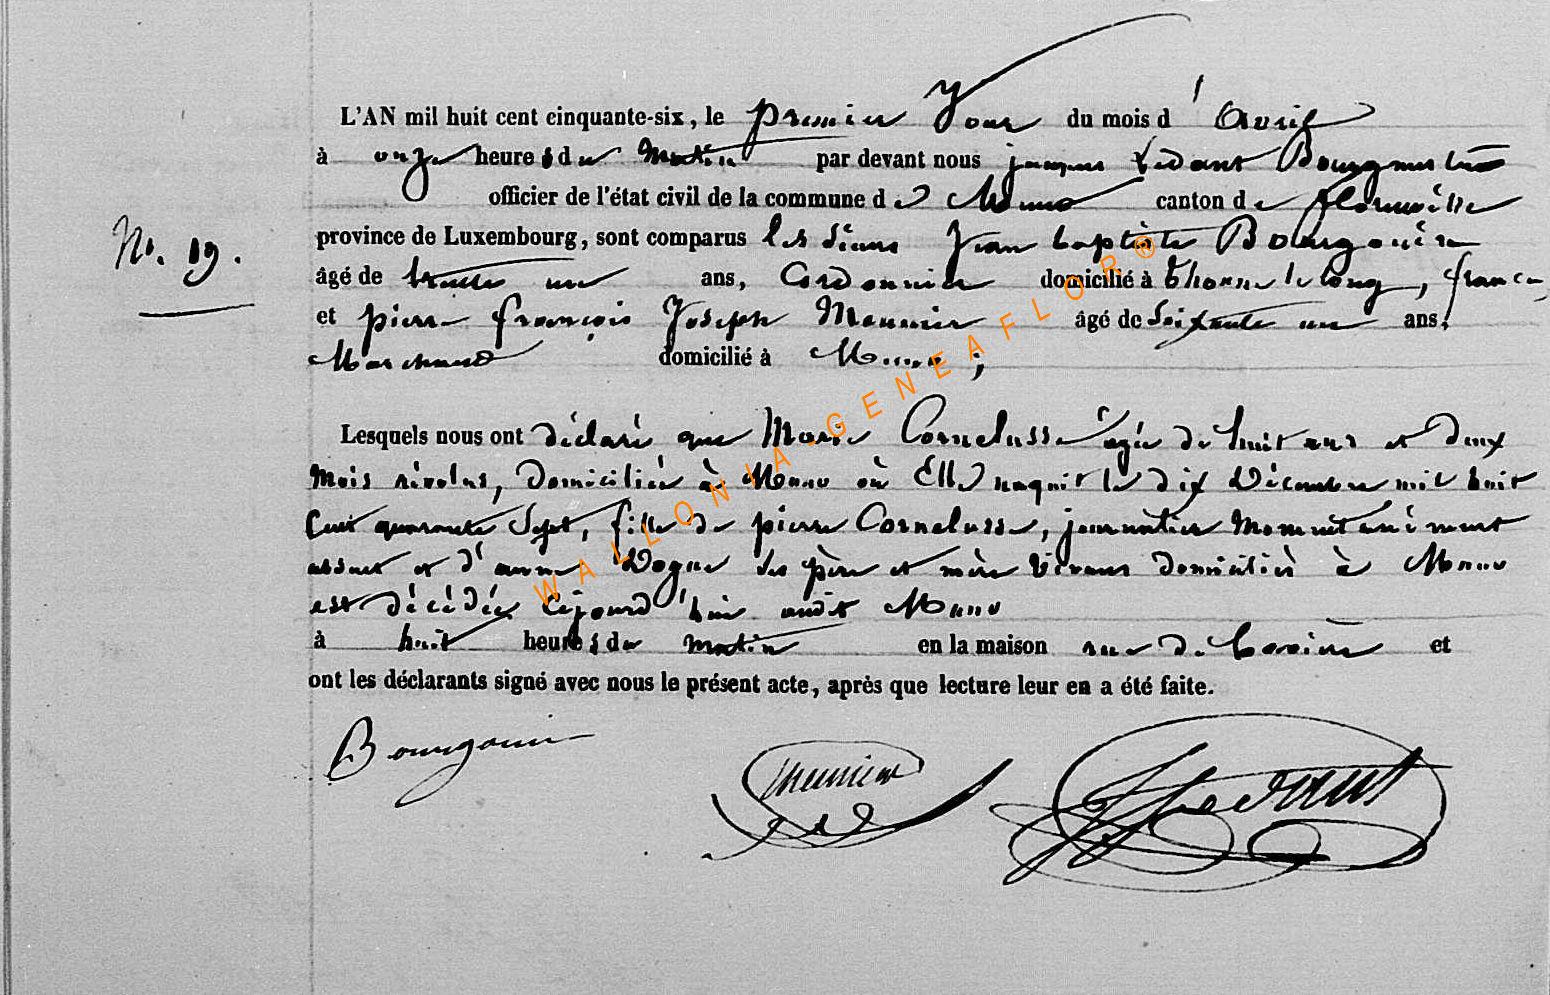 L'AN mil huit cent cinquante-six, le premier Jour du mois d' Avril
à onze heures du Matin par devant nous jacques Ledant Bourgmestre
officier de l'état civil de la commune de Muno canton de florenville
province de Luxembourg, sont comparus les sieurs Jean baptiste Bourgouin
N°. 19.
âgé de trente un ans, Cordonnier domicilié à thonne le long, france
et pierre françois Joseph Meunier âgé de Soixante un ans,
Marchand domicilié à Muno;
Lesquels nous ont déclaré que Marie Cornelusse agée de huit ans et deux
Mois révolus, Domiciliée à Muno où Elle naquit le dix Décembre mil huit
Cent quarante Sept, fille de pierre Cornelusse, journalier Momentanément
absent et d'anne Dogue ses père et mère vivans domiciliés à Muno
est décédée Cejourd'hui audit Muno
à huit heures du matin en la maison rue de et
ont les déclarants signé avec nous le présent acte, après que lecture leur en a été faite.
Bourgouin Meunier JLedant
WALLONIA-GENEAFLOR®